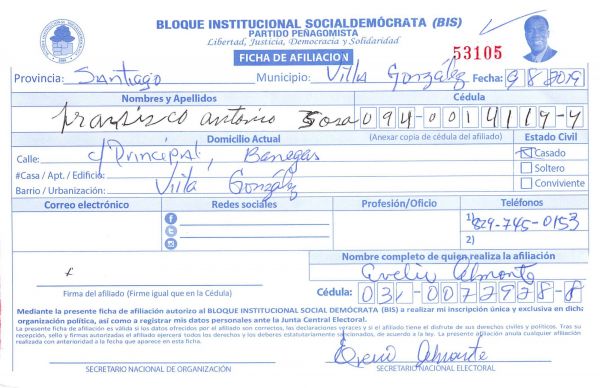 BLOQUE INSTITUCIONAL SOCIALDEMÓCRATA (BIS)
PARTIDO PEÑAGOMISTA
Libertad, Justicia, Democracia y Solidaridad
FICHA DE AFILIACIÓN
53105
Provincia: Santiago Municipio: Villa González Fecha: 9 8 2019
Nombres y Apellidos Cédula
fransisco antonio Sosa 094-0014119-4
Domicilio Actual (Anexar copia de cédula del afiliado) Estado Civil
Calle: c/ Principal, Banegas Casado
#Casa / Apt. / Edificio: Soltero
Barrio / Urbanización: Villa González Conviviente
Correo electrónico Redes sociales Profesión/Oficio Teléfonos
1) 829-745-0153
2)
Nombre completo de quien realiza la afiliación
Almonte
Firma del afiliado (Firme igual que en la Cédula) Cédula: 031-0077978-8
Mediante la presente ficha de afiliación autorizo al BLOQUE INSTITUCIONAL SOCIAL DEMÓCRATA (BIS) a realizar mi inscripción única y exclusiva en dicha
organización política, así como a registrar mis datos personales ante la Junta Central Electoral.
La presente ficha de afiliación es válida si los datos ofrecidos por el afiliado son correctos, las declaraciones veraces y si el afiliado tiene el disfrute de sus derechos civiles y políticos. Tras su
recepción, sello y firmas autorizadas el afiliado ejercerá todos los derechos y los deberes estatutariamente establecidos, de acuerdo a la Ley. La presente afiliación anula cualquier afiliación
realizada con anterioridad a la fecha que aparece en esta ficha.
Almonte
SECRETARIO NACIONAL DE ORGANIZACIÓN SECRETARIO NACIONAL ELECTORAL